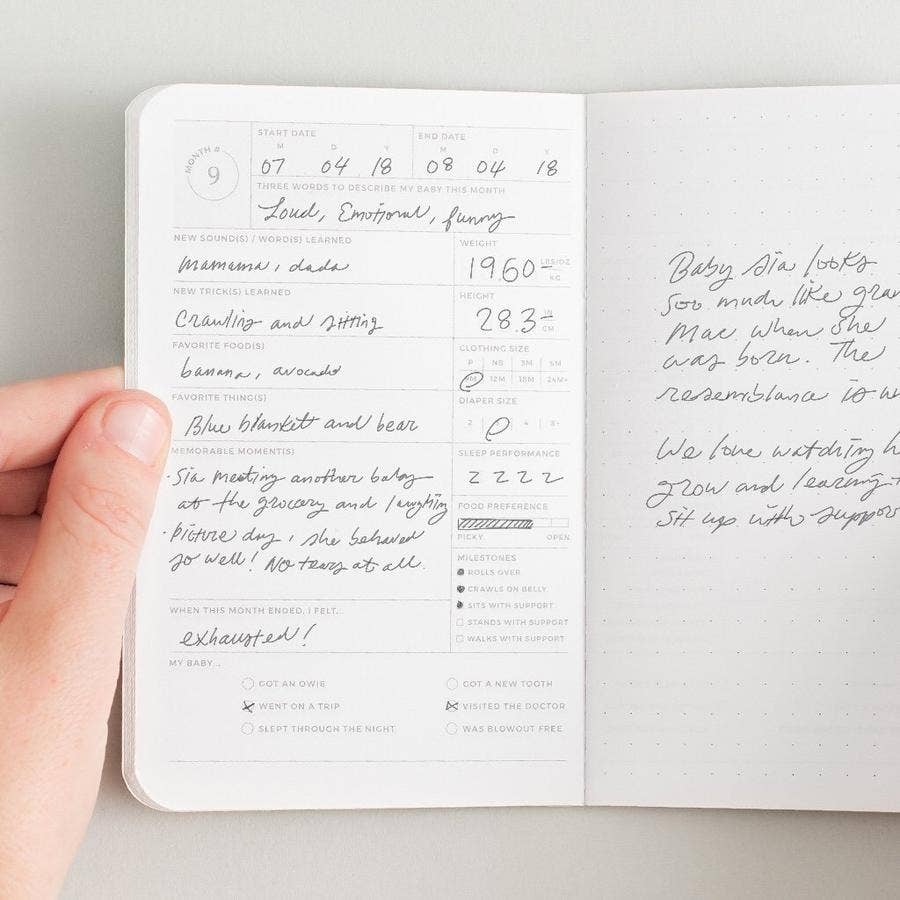 MONTH #
9
START DATE
M D Y
07 04 18
END DATE
M D Y
08 04 18
THREE WORDS TO DESCRIBE MY BABY THIS MONTH
Loud, Emotional, funny
NEW SOUND(S) / WORD(S) LEARNED
mamama, dada
NEW TRICK(S) LEARNED
Crawling and sitting
FAVORITE FOOD(S)
banana, avocado
FAVORITE THING(S)
Blue blankett and bear
MEMORABLE MOMENT(S)
· Sia meeting another baby
at the grocery and laughing
· Picture day, she behaved
so well! No tears at all.
WHEN THIS MONTH ENDED, I FELT...
exhausted!
WEIGHT
19.60 LBS/OZ
KG
HEIGHT
28.3 IN
CM
CLOTHING SIZE
P NB 3M 6M
9M 12M 18M 24M+
DIAPER SIZE
2 4 6+
SLEEP PERFORMANCE
Z Z Z Z
FOOD PREFERENCE
PICKY OPEN
MILESTONES
ROLLS OVER
CRAWLS ON BELLY
SITS WITH SUPPORT
STANDS WITH SUPPORT
WALKS WITH SUPPORT
MY BABY...
GOT AN OWIE
WENT ON A TRIP
SLEPT THROUGH THE NIGHT
GOT A NEW TOOTH
VISITED THE DOCTOR
WAS BLOWOUT FREE
Baby Sia looks
soo much like
Mae when she
was born. The
resemblance is
We love watching
grow and learning
sit up with